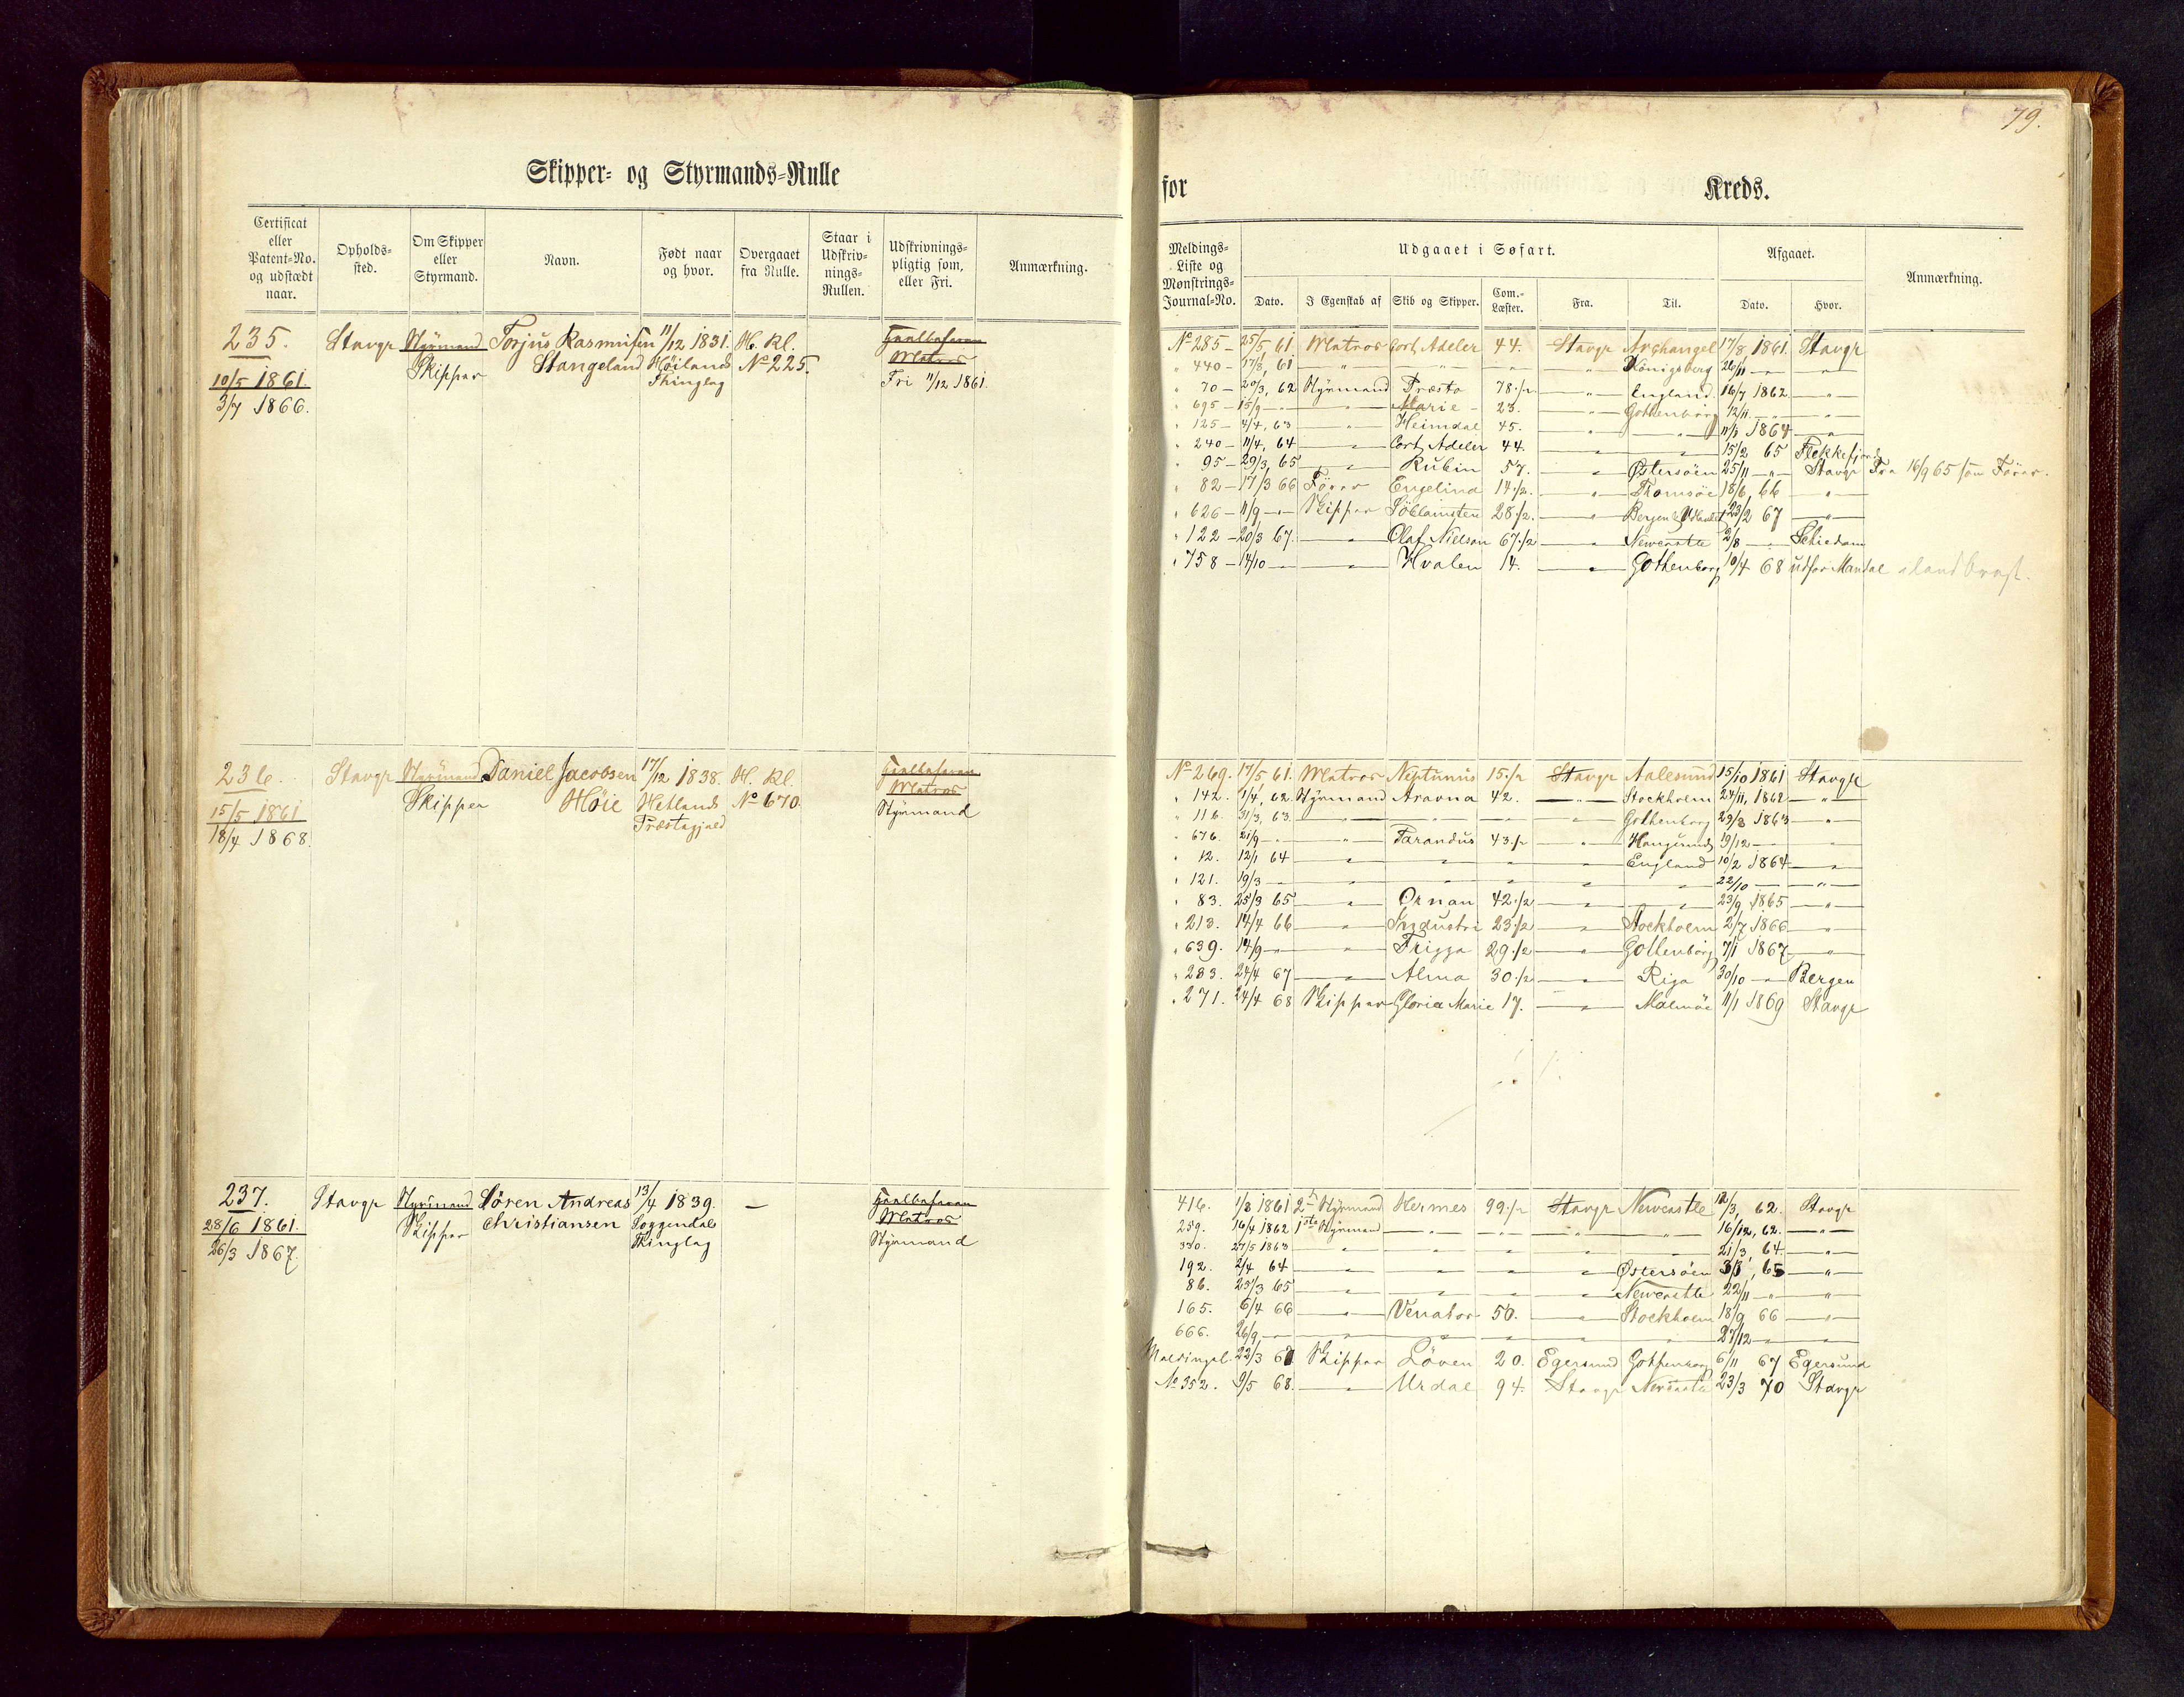 79.
Skipper- og Styrmands-Rulle
for Kreds.
Certificat eller Patent-No. og udstædt naar.
Opholds-sted.
Om Skipper eller Styrmand.
Navn.
Født naar og hvor.
Overgaaet fra Rulle.
Staar i Udskriv-nings-Rullen.
Udskrivnings-pligtig som, eller Fri.
Anmærkning.
Meldings-Liste og Mønstrings-Journal-No.
Udgaaet i Søfart.
Dato. I Egenskab af Skib og Skipper. Com.-Læster. Fra. Til.
Afgaaet.
Dato. Hvor.
Anmærkning.
235. Stavgr Styrmand Torjus Rasmussen 11/12 1831. H. Kl.
Skipper Stangeland Høilands No 225.
10/5 1861. Thinglag
3/7 1866.
Matros
Fri 11/12 1861.
No 285 - 25/5, 61 Matros Cort Adeler 44. Stavgr Archangel 17/8 1861. Stavgr
" 440 - 17/8, 61 " " " " Königsberg 26/11 - " - "
" 70 - 20/3, 62 Styrmand Præsto 78./2 " England 16/7 1862 "
" 695 - 15/9 - " - " Marie - 23. " Gothenborg 12/11 - " - "
" 125 - 4/4, 63 " Heimdal 45. " " 11/1 1864 "
" 240 - 11/4, 64 " Cort Adeler 44. " " 15/2 65 Flekkefjord
" 95 - 29/3, 65 " Rubin 57. " Østersøen 25/11 - " - Stavgr Fra 16/9 65 som Fører.
" 82 - 17/3 66 Fører Engelina 14./2. " 18/6, 66 "
" 626 - 11/9 - " - Skipper 28./2. " Bergen 23/2 67 "
" 122 - 20/3 67. " Olaf Nielson 67./2 " Newcastle 2/8 - " Schiedam
" 758 - 14/10 - " Hvalen 14. " Gothenborg 10/4 68 udfor Mandal
236. Stavgr Styrmand Daniel Jacobsen 17/12 1838. H. Kl.
Skipper Høie Hetlands No 670.
15/5 1861 Præstegjeld
18/4 1868.
Matros
Styrmand
No 269. 17/5 61. Matros Neptunus 15./2 Stavgr Aalesund 15/10 1861 Stavgr
" 142. 1/4, 62. Styrmand Aravna 42. " Stockholm 24/11, 1862 "
" 116. 31/3, 63. " " " " Gothenborg 29/8 1863 "
" 676. 21/9 - " - " Tarandus 43./2 " Haugesund 19/12 - "
" 12. 12/1 64 " " " " England 10/2 1864 "
" 121. 19/3 - " " " " " 22/10 - "
" 83. 25/3 65 " Ornan 42./2 " " 23/9 1865 "
" 213. 14/4 66 " Industri 23./2 " Stockholm 2/7 1866 "
" 639. 14/9 - " Frigga 29./2 " Gothenborg 7/1 1867 "
" 283. 24/4 67 " Alma 30./2 " Riga 30/10 - " Bergen
" 271. 24/4 68 Skipper Gloria Marie 17. " Malmøe 11/1 1869 Stavgr
237. Stavgr Styrmand Sören Andreas 13/4 1839. —
28/6 1861. Skipper Christiansen Soggendals
26/3 1867. Thinglag
Matros
Styrmand
416. 1/8 1861 2 Styrmand Hermes 99./2 Stavgr Newcastle 12/3, 62. Stavgr
259. 16/4 1862 1ste Styrmand " " " " 16/12, 62. "
330. 27/5 1863 " " " " " 21/3, 64. "
192. 2/4 64 " " " " Østersøen 3/1, 65 "
86. 25/3 65 " " " " Newcastle 22/11 - " "
165. 6/4 66 " Venator 50. " Stockholm 18/9 66 "
666. 26/9 - " " " " " 27/12 - " "
Meldingsl. 22/3 67 Skipper Löven 20. Egersund Gothenborg 6/11 67 Egersund
No 352. 9/5 68. " Urdal 94. Stavgr Newcastle 23/3 70 Stavgr